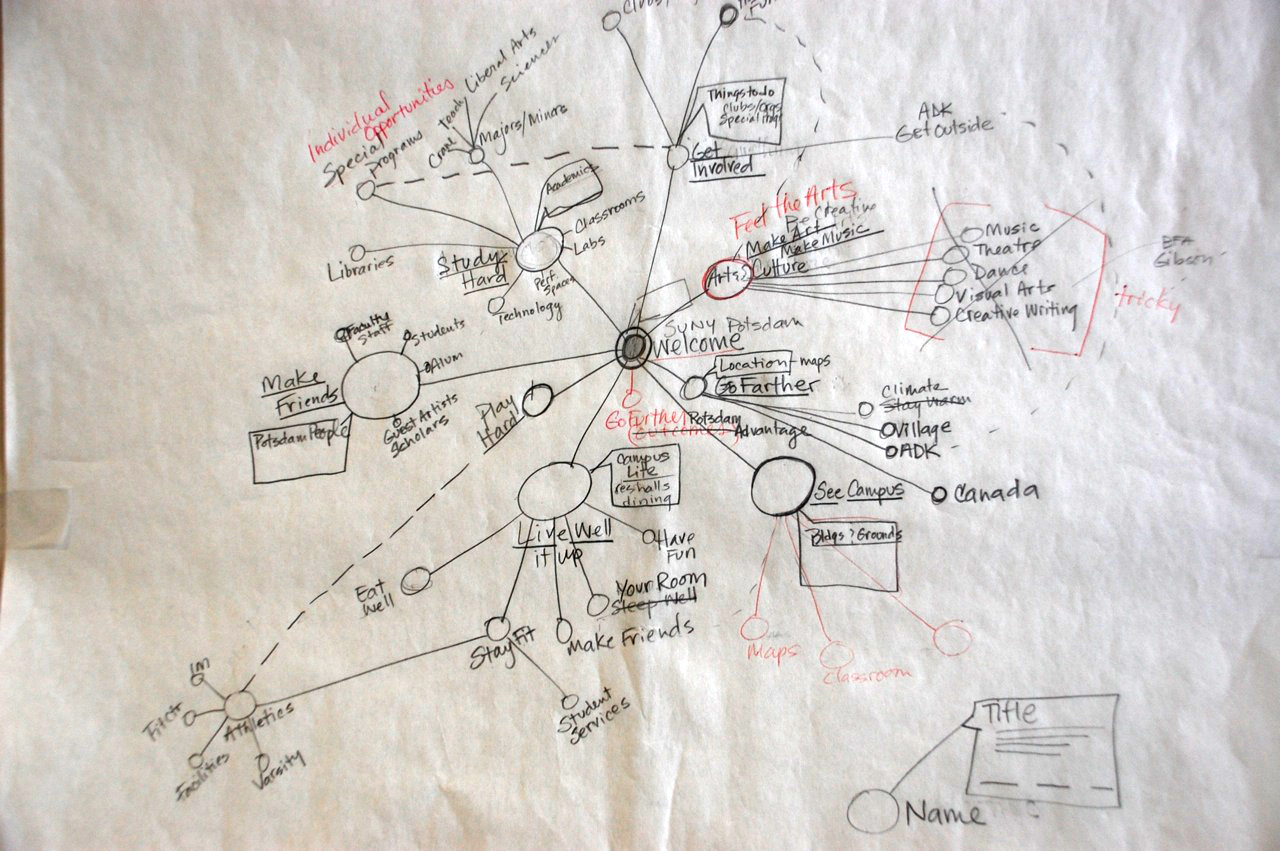 Clubs/
Fun
Individual
Opportunities
Special
Programs
Crane
teach
Liberal Arts
Sciences
Majors/Minors
Things to do
Clubs/orgs
Get
Involved
ADK
Get Outside
Academics
Classrooms
Labs
Perf.
Spaces
Technology
Study
Hard
Libraries
Feel the Arts
Be Creative
Make Art
Make Music
Arts &
Culture
Music
Theatre
Dance
Visual Arts
Creative Writing
tricky
BFA
Gibson
SUNY Potsdam
Welcome
Faculty
Staff
Students
Alum
Guest Artists
Scholars
Make
Friends
Potsdam People
Play
Hard
Location - maps
Go Farther
Go Further
Outcomes
Potsdam
Advantage
Climate
Stay Warm
Village
ADK
Canada
See Campus
Bldgs & Grounds
Maps
Classroom
Campus
Life
res halls
dining
Live Well
it up
Have
Fun
Your Room
Sleep Well
Make Friends
Eat
Well
Stay Fit
Student
Services
Im
Fit Ctr
Athletics
Facilities
Varsity
Title
Name